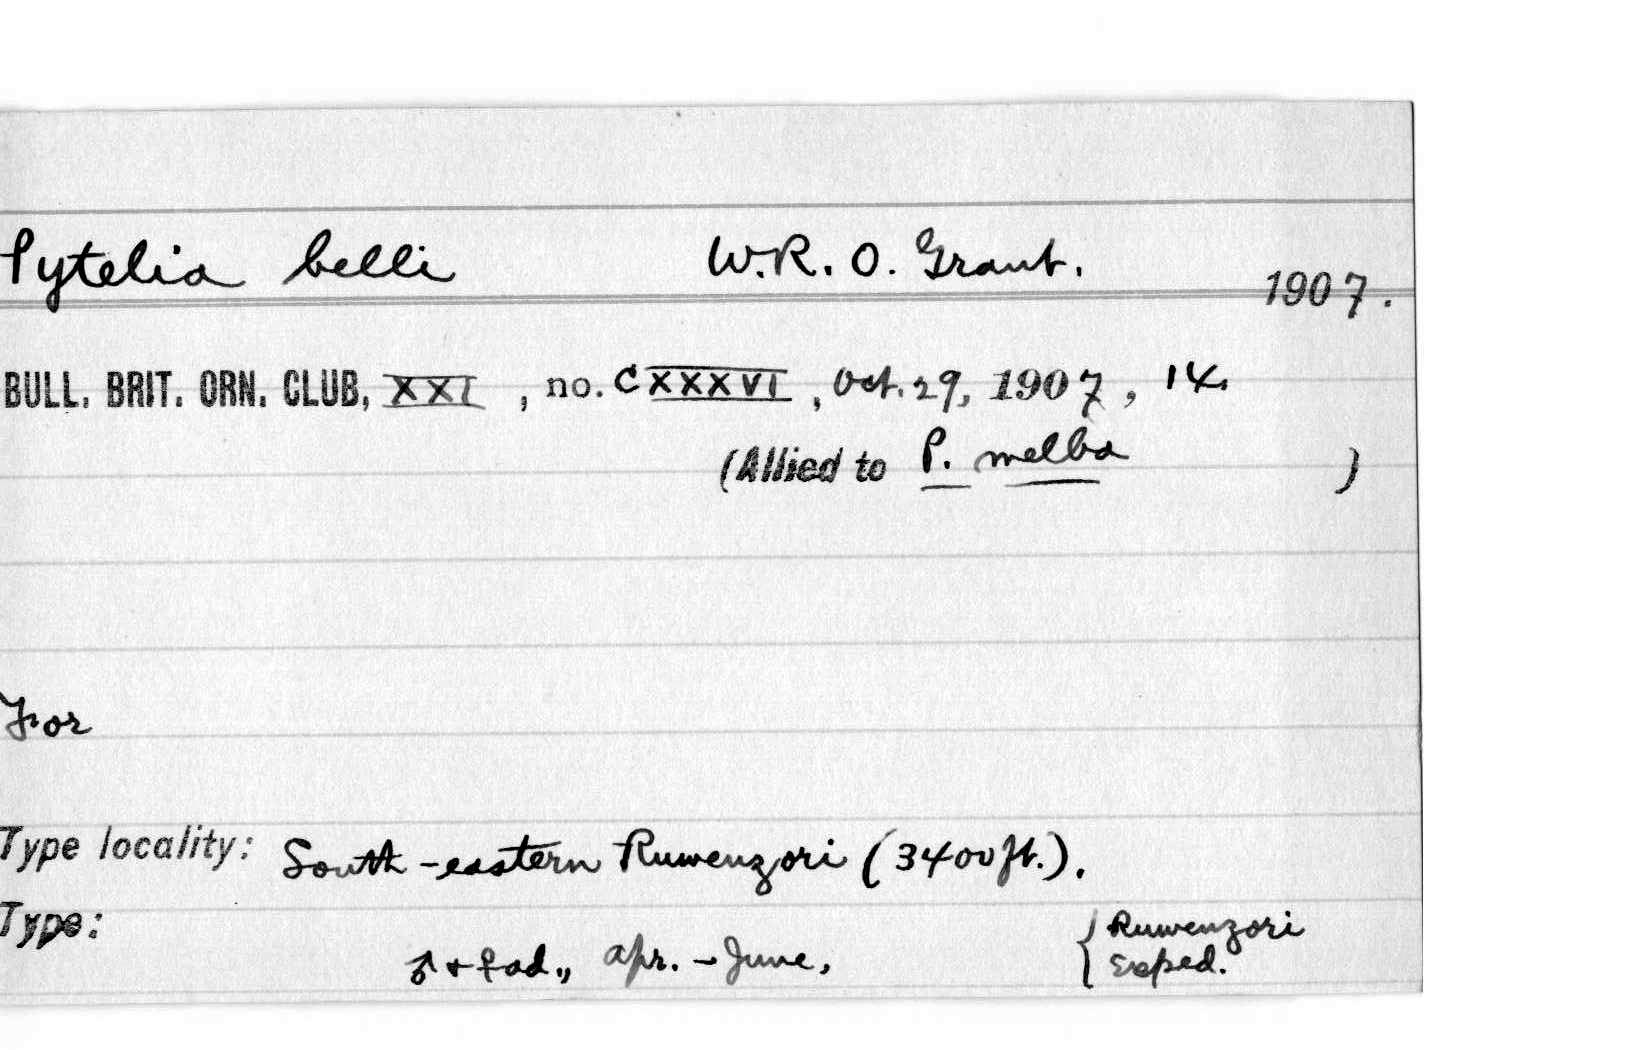 Pytelia belli W.R. O. Grant. 1907.
BULL. BRIT. ORN. CLUB, XXI, no. CXXXVI, Oct. 29, 1907, 14.
(Allied to P. melba)
For
Type locality: South-eastern Ruwenzori (3400 ft.).
Type:
♂ + ♀ ad., Apr. - June, { Ruwenzori
Exped.